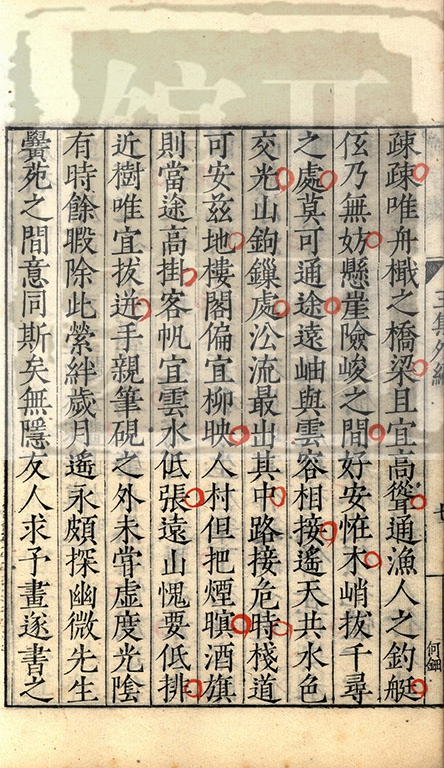 疎疎唯舟檝之橋梁且宜高聳通漁人之釣艇
仾乃無妨懸崖險峻之間好安恠木峭拔千尋
之處莫可通途遠岫與雲容相接遙天共水色
交光山鉤鏁處㳂流最出其中路接危時棧道
可安兹地樓閣偏宜柳映人村但把煙酒旗
則當途高掛客帆宜雲水低張遠山愧要低排
近樹唯宜拔迸手親筆硯之外未甞虛度光陰
有時餘暇除此縈絆歲月遙永頗探幽微先生
黌苑之間意同斯矣無隱友人求予畫遂書之